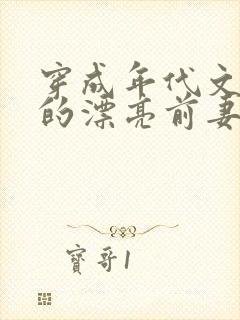 穿成年代文
的漂亮前妻
寶哥1